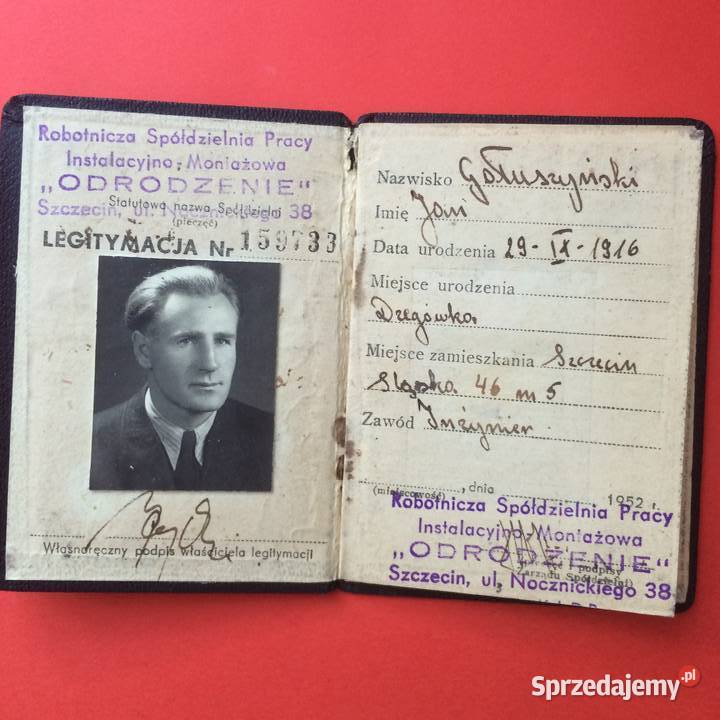 Robotnicza Spółdzielnia Pracy
Instalacyjno-Montażowa
„ODRODZENIE"
Statutowa nazwa Spółdzielni
Szczecin, ul. Nocznickiego 38
(pieczęć)
LEGITYMACJA Nr 159733
Własnoręczny podpis właściciela legitymacji
Nazwisko Gołuszyński
Imię Jan
Data urodzenia 29-IX-1916
Miejsce urodzenia
Dregówka
Miejsce zamieszkania Szczecin
Śląska 46 m 5
Zawód Inżynier
, dnia 1952 r.
(miejscowość)
Robotnicza Spółdzielnia Pracy
Instalacyjno-Montażowa
„ODRODZENIE"
podpisy
Zarządu Spółdzielni)
Szczecin, ul. Nocznickiego 38
Sprzedajemy.pl